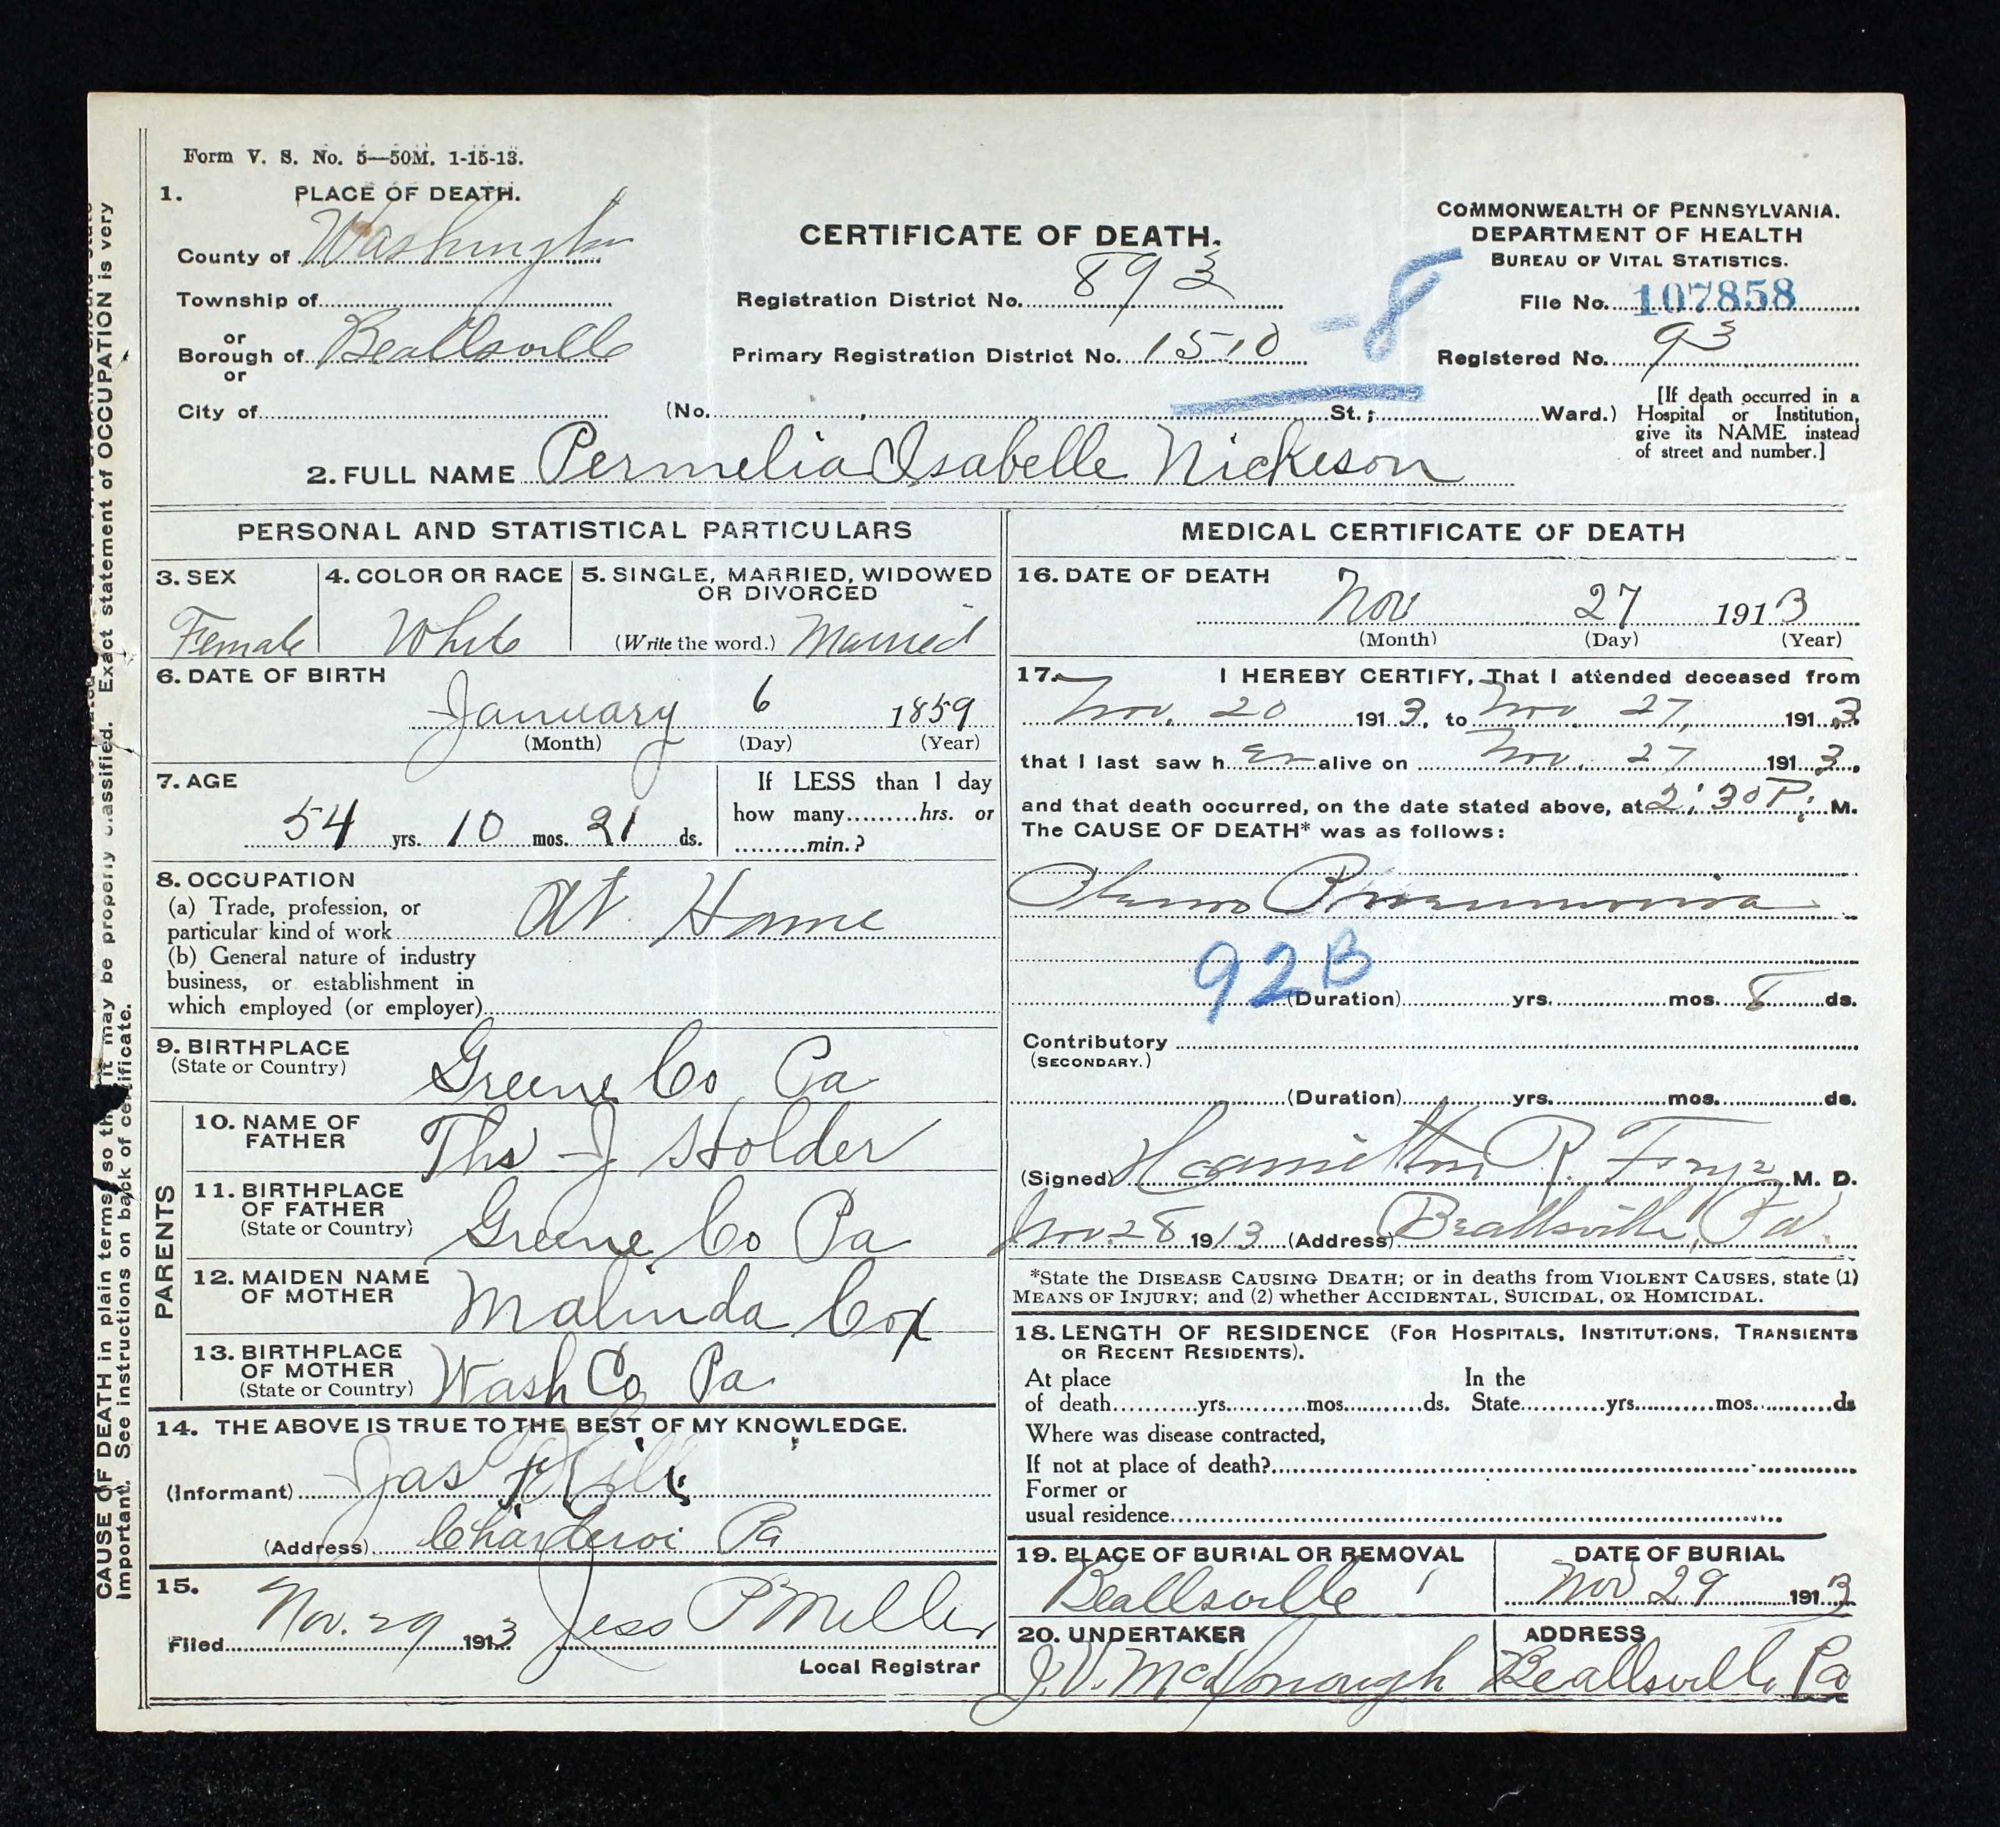 Form V. S. No. 5—50M. 1-15-13.
1. PLACE OF DEATH.
County of Washington
Township of
or
Borough of Beallsville
or
City of
CERTIFICATE OF DEATH.
Registration District No. 893
Primary Registration District No. 1510
-8
(No. , St.; Ward.)
COMMONWEALTH OF PENNSYLVANIA.
DEPARTMENT OF HEALTH
BUREAU OF VITAL STATISTICS.
File No. 107858
Registered No. 93
[If death occurred in a
Hospital or Institution,
give its NAME instead
of street and number.]
2. FULL NAME Permelia Isabelle Nickeson
PERSONAL AND STATISTICAL PARTICULARS
3. SEX
Female
4. COLOR OR RACE
White
5. SINGLE, MARRIED, WIDOWED
OR DIVORCED
(Write the word.) Married
6. DATE OF BIRTH
January 6 1859
(Month) (Day) (Year)
7. AGE
54 yrs. 10 mos. 21 ds.
If LESS than 1 day
how many hrs. or
min.?
8. OCCUPATION
(a) Trade, profession, or
particular kind of work At Home
(b) General nature of industry
business, or establishment in
which employed (or employer)
9. BIRTHPLACE
(State or Country) Greene Co Pa
PARENTS
10. NAME OF
FATHER Ths J Holder
11. BIRTHPLACE
OF FATHER
(State or Country) Greene Co Pa
12. MAIDEN NAME
OF MOTHER Malinda Cox
13. BIRTHPLACE
OF MOTHER
(State or Country) Wash Co Pa
14. THE ABOVE IS TRUE TO THE BEST OF MY KNOWLEDGE.
(Informant) Jas
(Address) Charleroi Pa
15.
Filed Nov. 29 1913 Jess P Miller
Local Registrar
MEDICAL CERTIFICATE OF DEATH
16. DATE OF DEATH
Nov 27 1913
(Month) (Day) (Year)
17. I HEREBY CERTIFY, That I attended deceased from
Nov. 20 1913, to Nov. 27, 1913
that I last saw her alive on Nov. 27 1913,
and that death occurred, on the date stated above, at 2:30 P. M.
The CAUSE OF DEATH* was as follows:
Pleuro Pneumonia
92B
(Duration) yrs. mos. 8 ds.
Contributory
(SECONDARY.)
(Duration) yrs. mos. ds.
(Signed) Hamilton R. M. D.
Nov. 28 1913 (Address) Beallsville, Pa.
*State the DISEASE CAUSING DEATH; or in deaths from VIOLENT CAUSES, state (1)
MEANS OF INJURY; and (2) whether ACCIDENTAL, SUICIDAL, OR HOMICIDAL.
18. LENGTH OF RESIDENCE (FOR HOSPITALS, INSTITUTIONS, TRANSIENTS
OR RECENT RESIDENTS).
At place In the
of death yrs. mos. ds. State yrs. mos. ds
Where was disease contracted,
If not at place of death?
Former or
usual residence
19. PLACE OF BURIAL OR REMOVAL
Beallsville
DATE OF BURIAL
Nov 29 1913
20. UNDERTAKER
J. V. McDonough
ADDRESS
Beallsville Pa
CAUSE OF DEATH in plain terms, so that it may be properly classified. Exact statement of OCCUPATION is very
Important. See instructions on back of certificate.